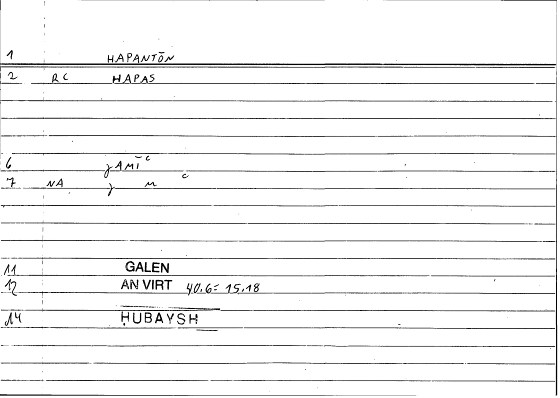 1 HAPANTŌN
2 RC HAPAS
6 ǧAMĪʿ
7 NA ǧ m ʿ
11 GALEN
12 AN VIRT 40.6 = 15.18
14 ḤUBAYSH